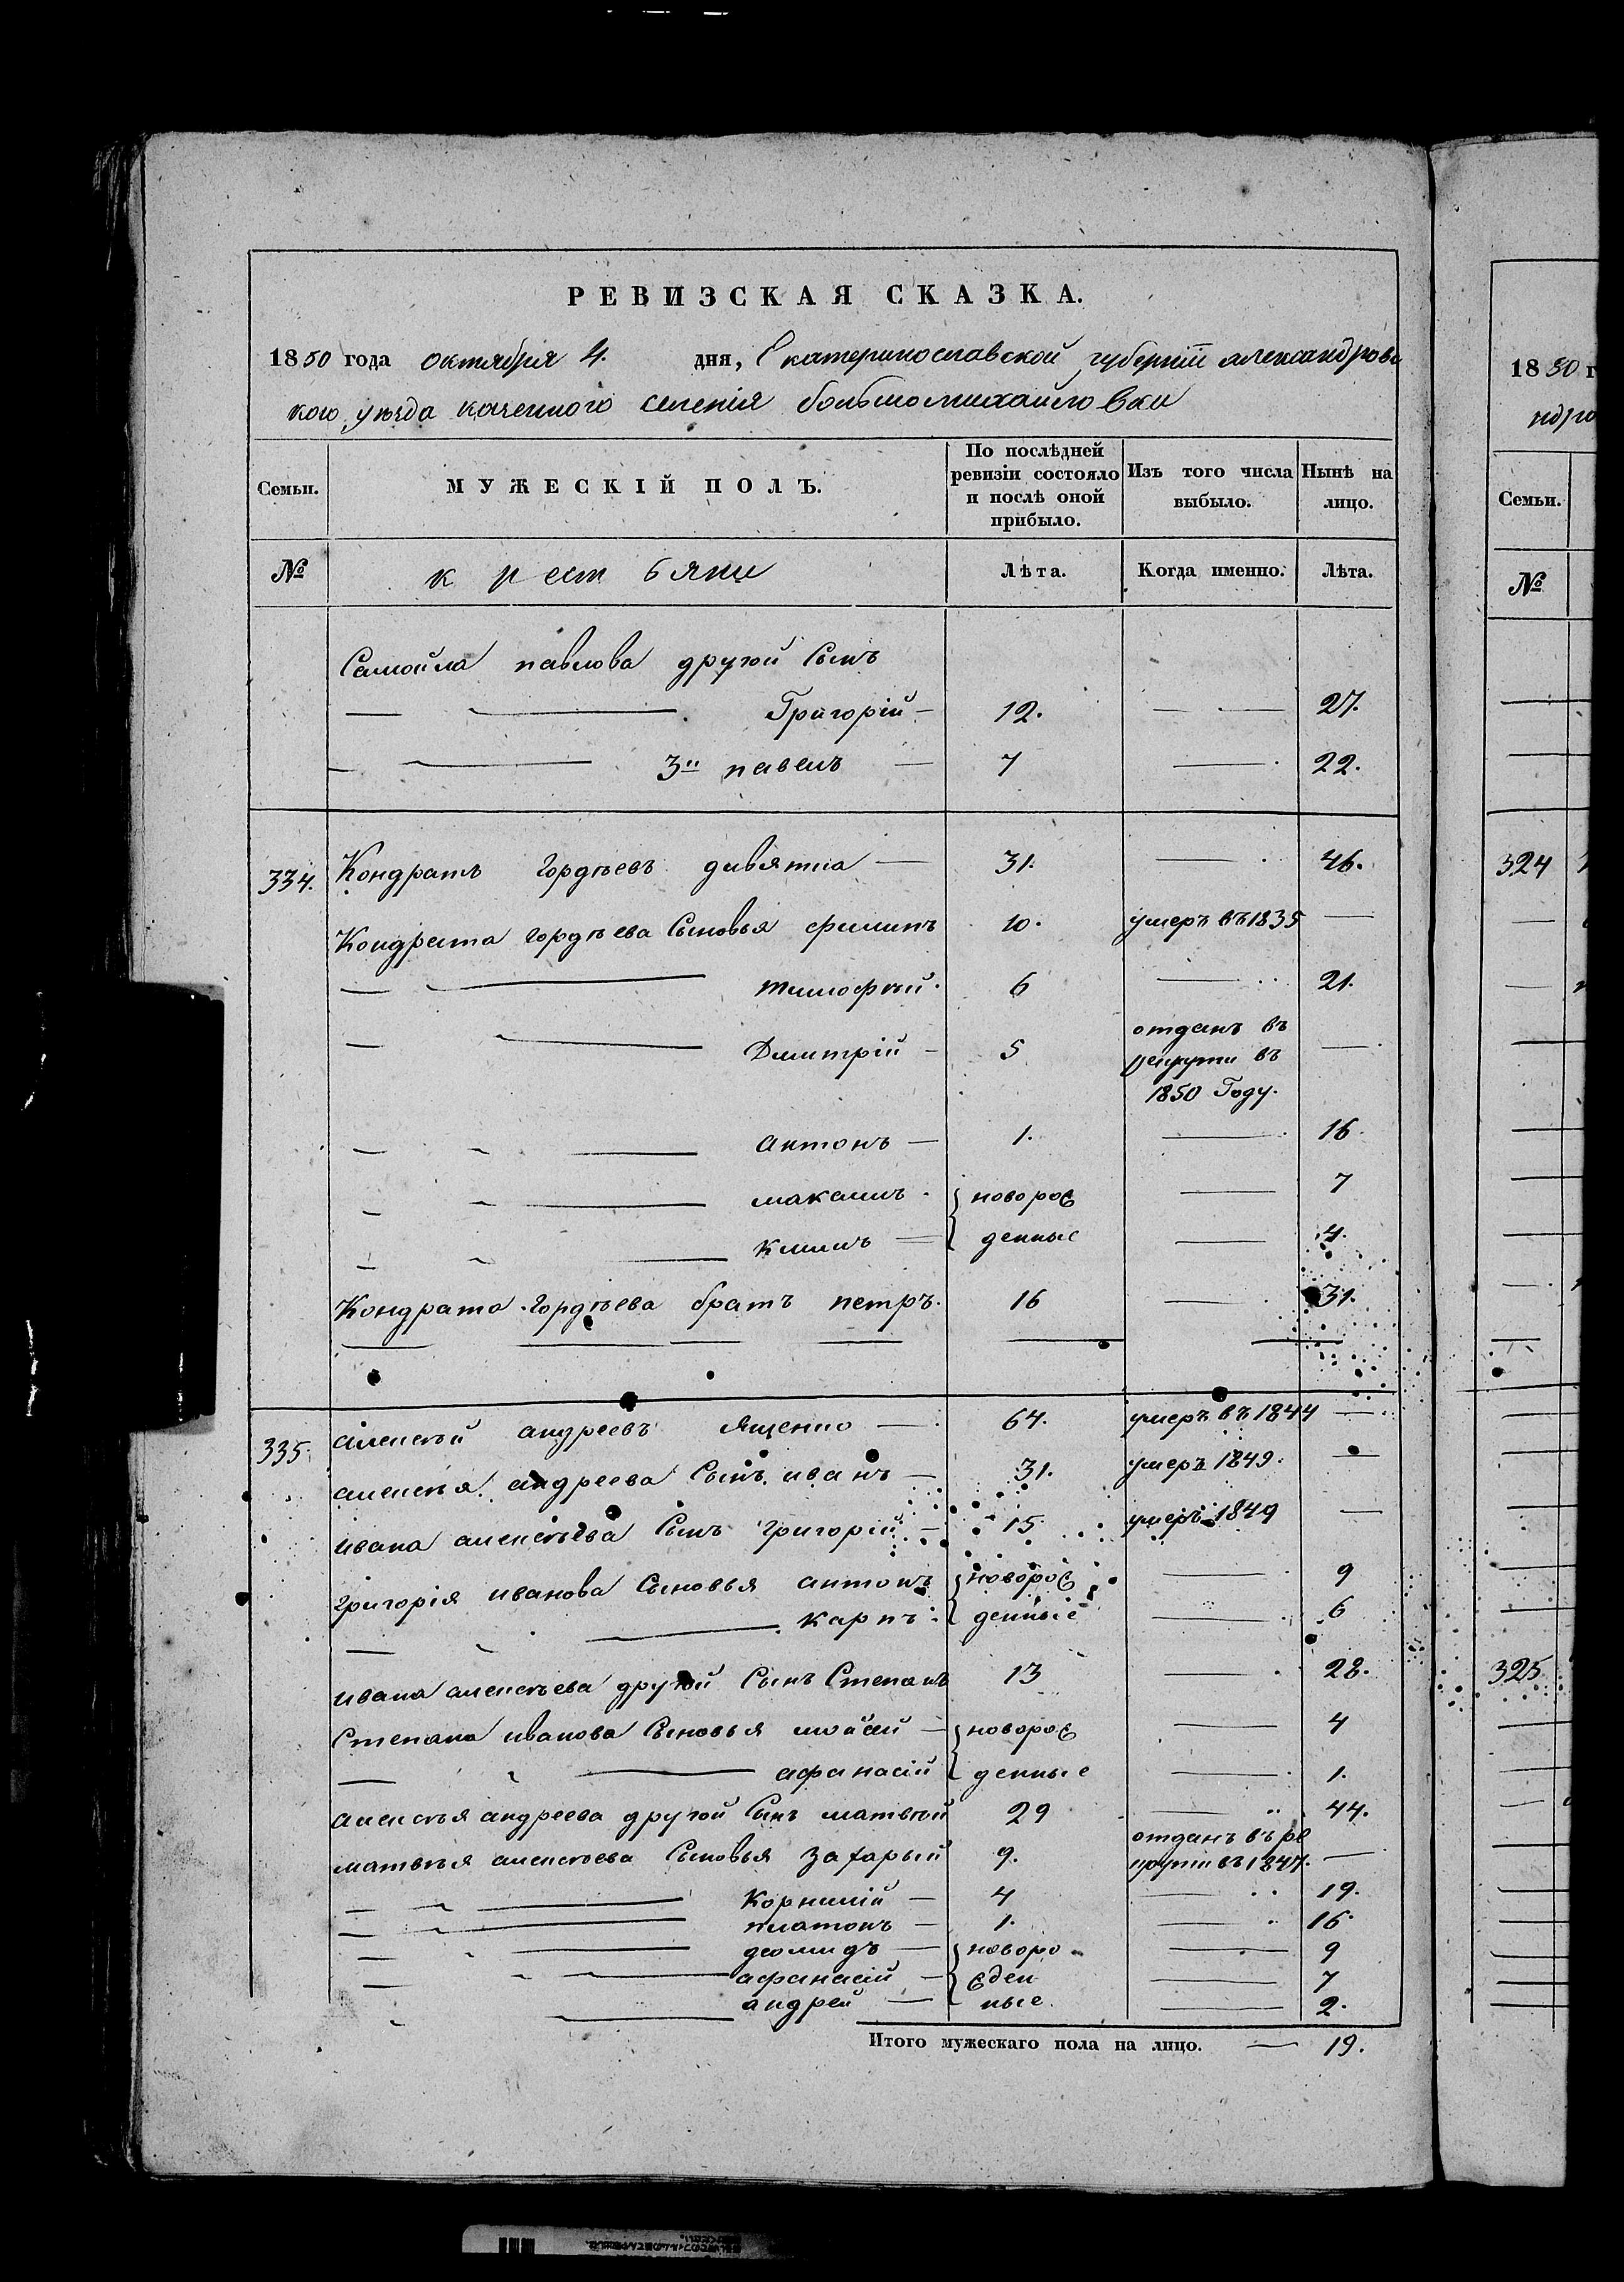 РЕВИЗСКАЯ СКАЗКА.
1850 года октября 4. дня, Екатеринославской губерніи александровс
кого уѣзда казенного селенія большомихайловки
Семьи.
МУЖЕСКІЙ ПОЛЪ.
По послѣдней ревизіи состояло и послѣ оной прибыло.
Изъ того числа выбыло.
Нынѣ на лицо.
№ крестьяне Лѣта. Когда именно. Лѣта.
Самойла павлова другой Сынъ
Григорій 12. 27.
3й павелъ 7 22.
334. Кондратъ Гордѣевъ дивятка 31. 46.
Кондрата гордѣева Сыновья филипъ 10. умеръ въ 1835
тимофѣй 6 21.
Дмитрій 5 отданъ въ
рекруты въ
1850 Году.
антонъ 1. 16
максимъ новорож 7
климъ денные 4.
Кондрата Гордѣева братъ петръ. 16 31.
335. алексѣй андреевъ Ященко 64. умеръ въ 1844
алексѣя андреева Сынъ иванъ 31. умеръ 1849.
ивана алексѣева Сынъ григорій 15 умеръ 1849
григорія иванова Сыновья антонъ новорож 9
карпъ денные 6
ивана алексѣева другой Сынъ Степанъ 13 28.
Степана иванова Сыновья мойсей новорож 4
афанасій денные 1.
алексѣя андреева другой Сынъ матвѣй 29 44.
матвѣя алексѣева Сыновья захарый 9. отданъ въ ре
круты въ 1847.
Корнилій 4 19.
платонъ 1. 16
деомидъ новоро 9
афанасій жден 7
андрей ные. 2.
Итого мужескаго пола на лицо. 19.
1850 г
ндро
Семьи.
№
324
325